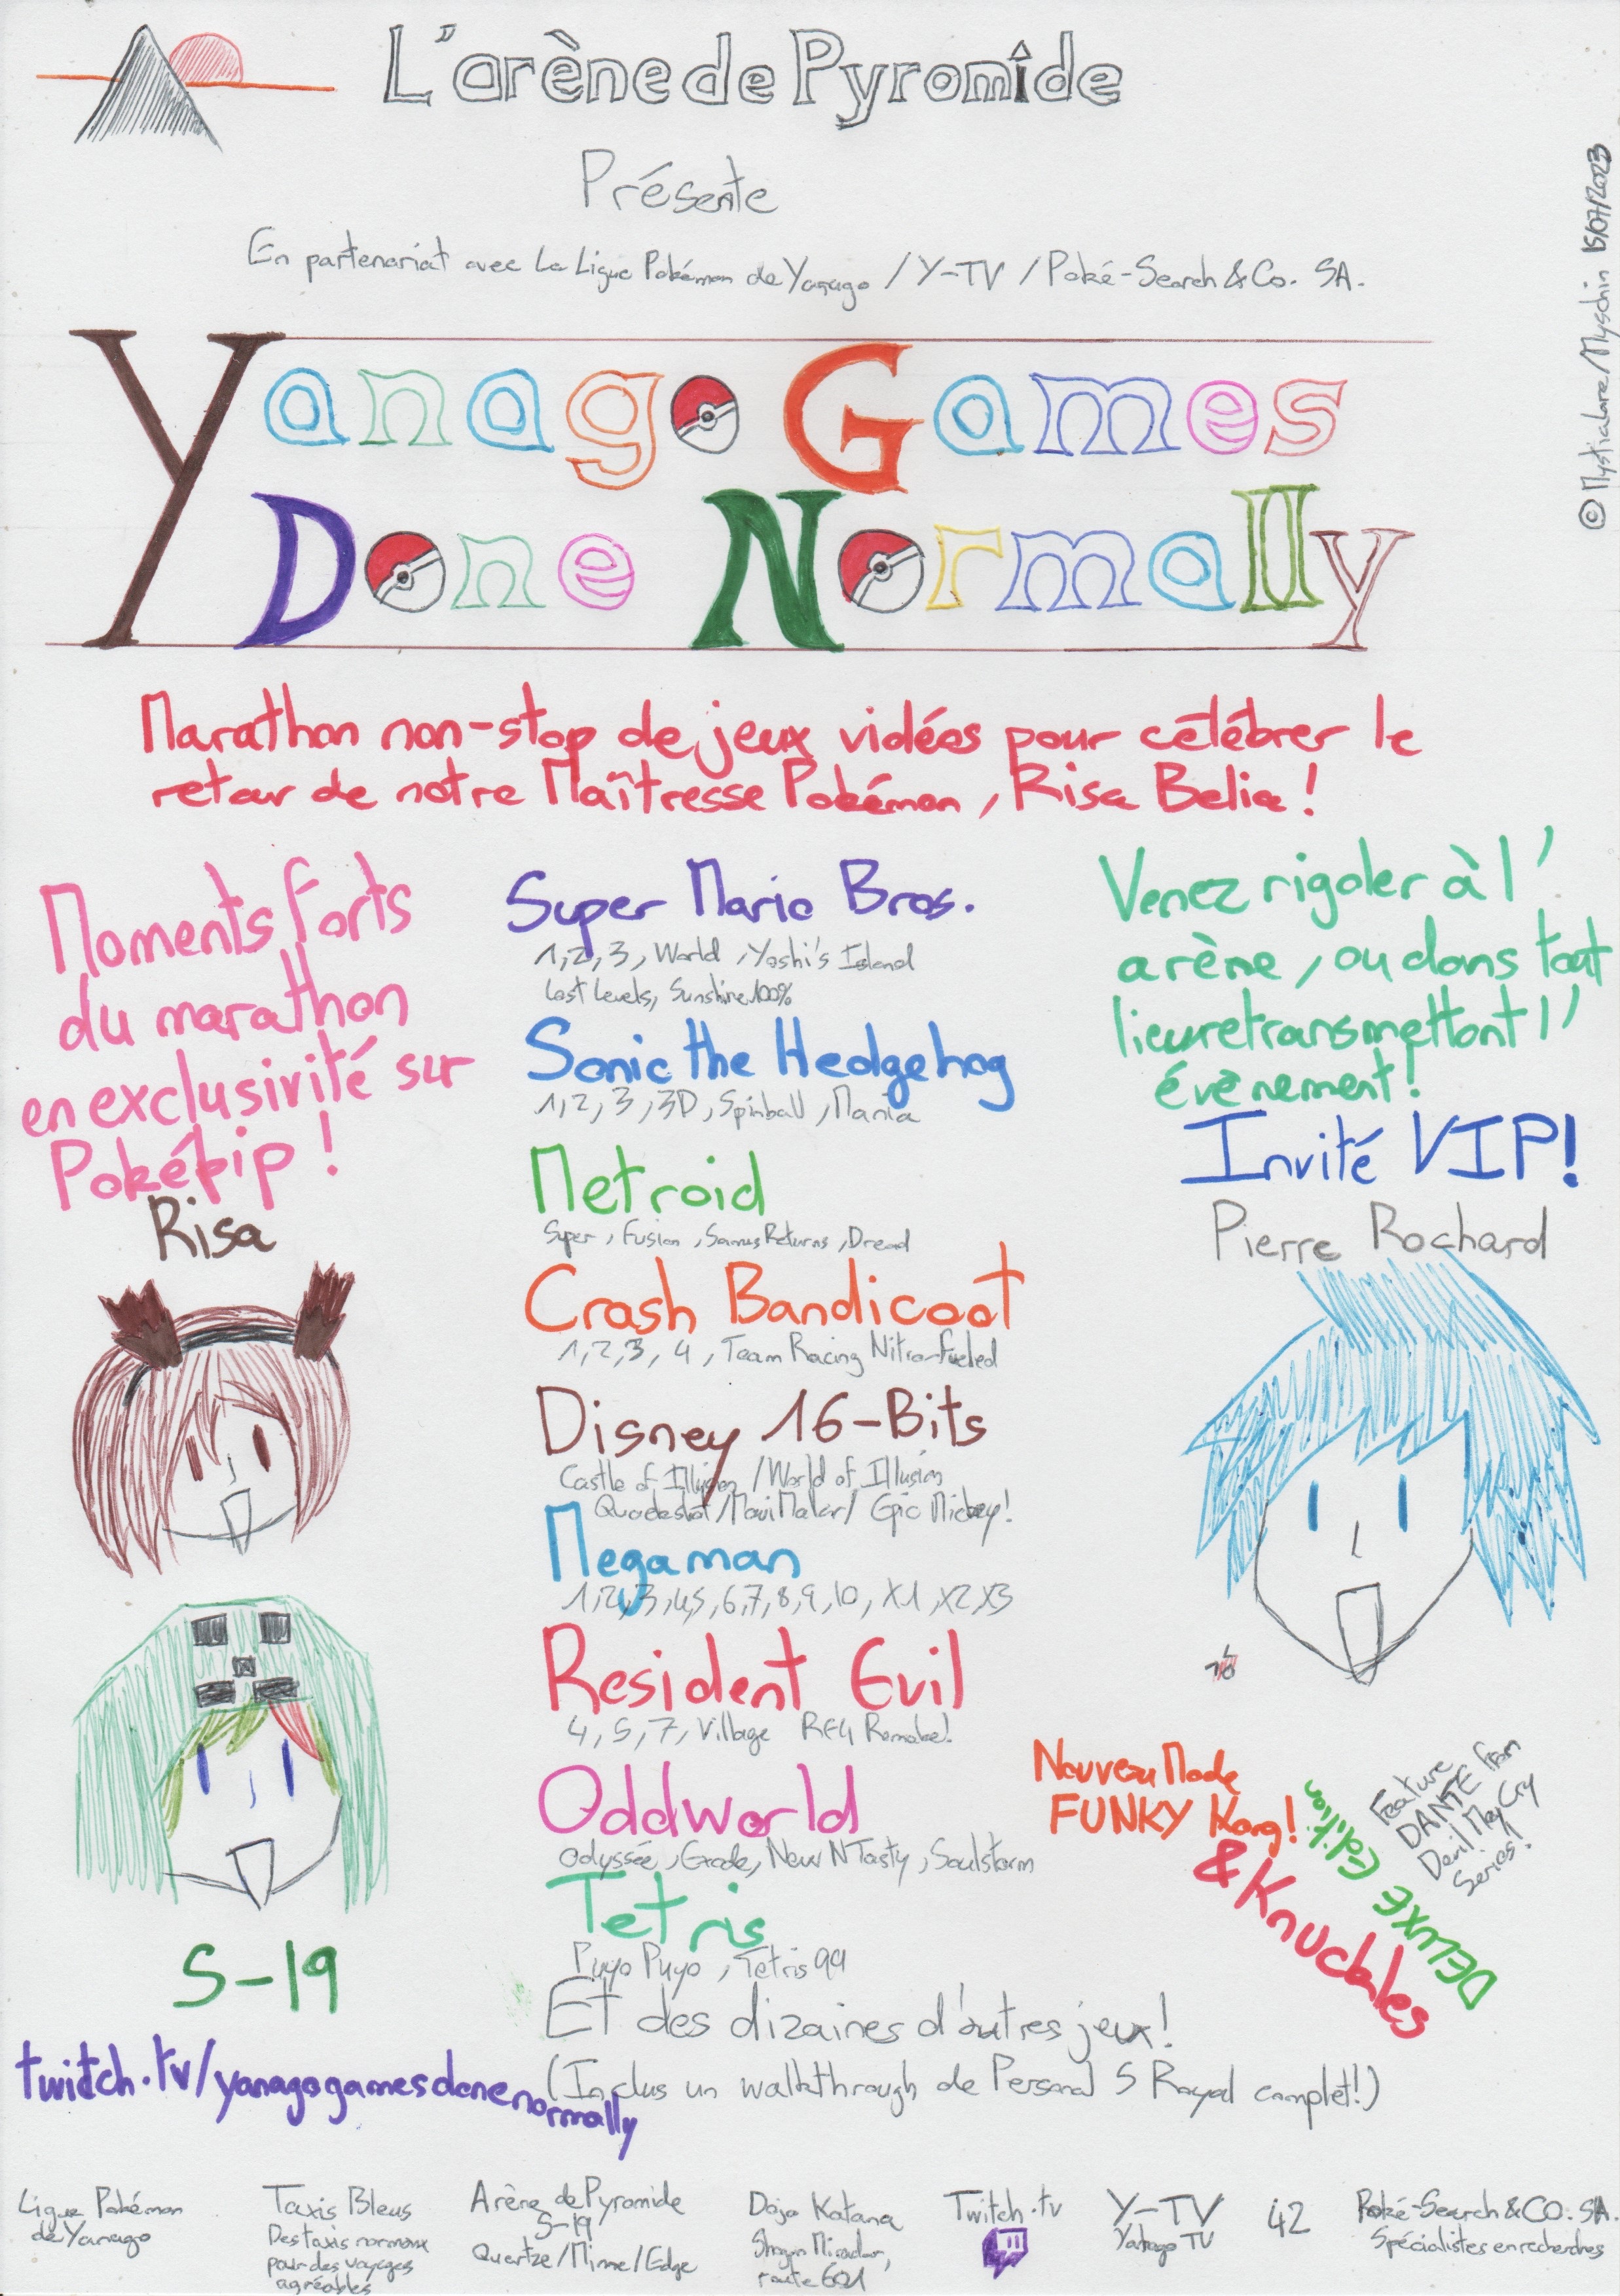 L'arène de Pyromide
Présente
En partenariat avec La Ligue Pokémon de Yanago / Y-TV / Poké-Search & Co. SA.
© Mystialane/Myschin 15/07/2023
Yanago Games
Done Normally
Marathon non-stop de jeux vidéos pour célébrer le
retour de notre Maîtresse Pokémon, Risa Belia !
Moments forts
du marathon
en exclusivité sur
Pokékip !
Risa
S-19
twitch.tv/yanagogamesdonenormally
Super Mario Bros.
1, 2, 3, World, Yoshi's Island
Lost Levels, Sunshine 100%
Sonic the Hedgehog
1, 2, 3, 3D, Spinball, Mania
Metroid
Super, Fusion, Samus Returns, Dread
Crash Bandicoot
1, 2, 3, 4, Team Racing Nitro-Fueled
Disney 16-Bits
Castle of Illusion / World of Illusion
Quackshot / Maui Mallar / Epic Mickey!
Megaman
1, 2, 3, 4, 5, 6, 7, 8, 9, 10, X1, X2, X3
Resident Evil
4, 5, 7, Village RE4 Remake!
Oddworld
Odyssée, Exode, New N Tasty, Soulstorm
Tetris
Puyo Puyo, Tetris 99
Et des dizaines d'autres jeux!
(Inclus un walkthrough de Personal 5 Royal complet!)
Venez rigoler à l'
arène, ou dans tout
lieu retransmettant l'
évènement!
Invité VIP!
Pierre Rochard
Nouveau Mode
FUNKY Kong!
& Knuckles
DELUXE Edition
Feature
DANTE from
Devil May Cry
Series!
Ligue Pokémon
de Yanago
Taxis Bleus
Des taxis normaux
pour des voyages
agréables
Arène de Pyromide
S-19
Quartze/Mime/Edge
Dojo Katana
Shogun Mirador,
route 601
Twitch.tv
Y-TV
Yanago TV
42
Poké-Search & CO. SA.
Spécialistes en recherches